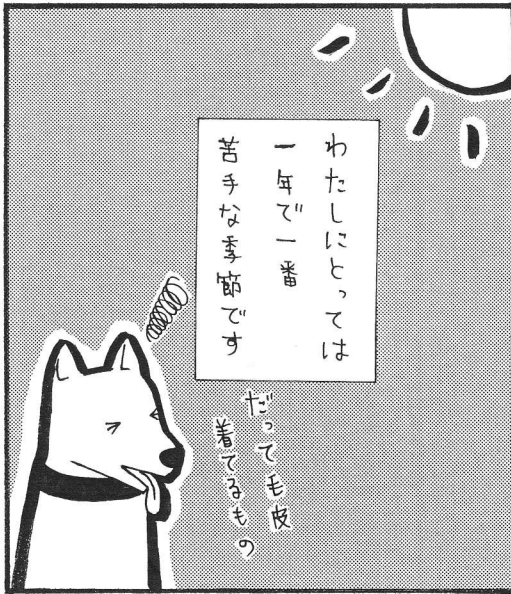 わたしにとっては
一年で一番
苦手な季節です
だって毛皮
着てるもの